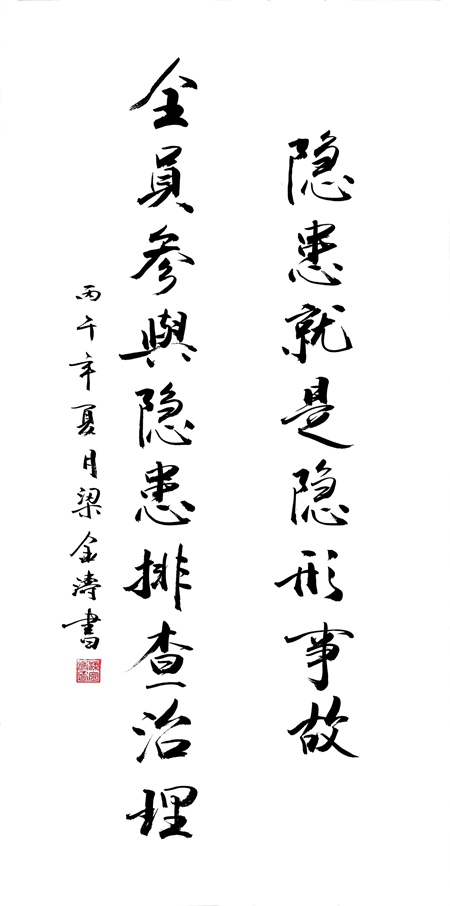 隐患就是隐形事故
全員参與隐患排查治理
丙午年夏月梁金涛書